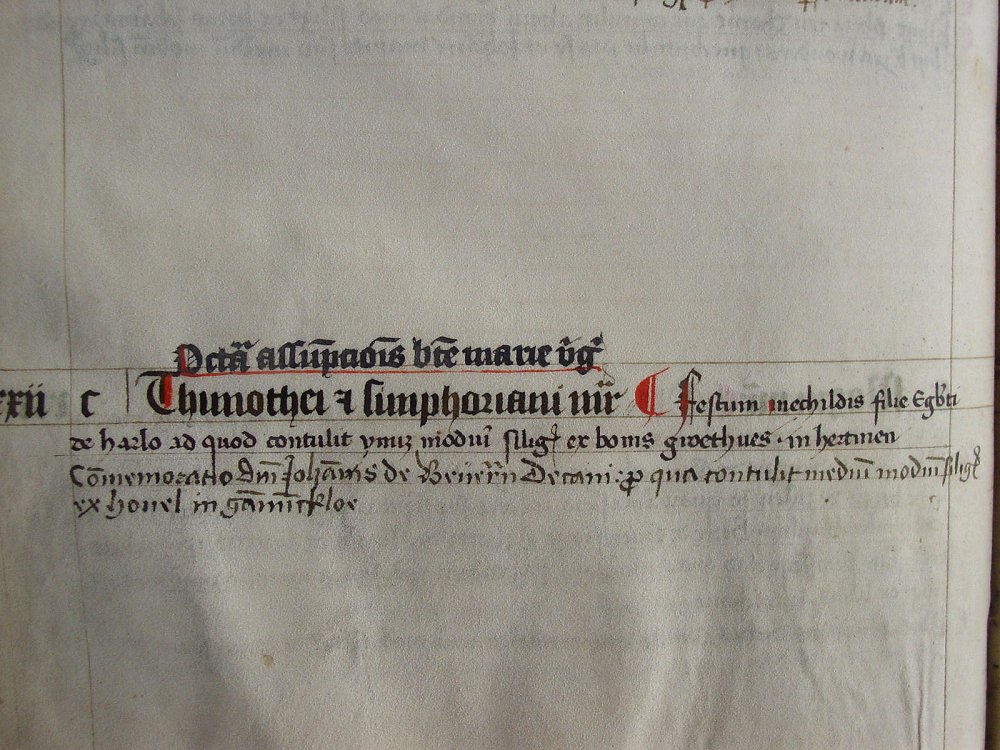 Octãa assũpcioĩs bt̃e marie v̾gĩs
xxii c Thimothei ⁊ simphoriani mr̃ ¶ Festum mechildis filie Egb̾ti
de harlo ad quod contulit ynuʒ modiũ silig̾ ex bonis groethues · in hertmen
Cõmemoratio Dñi Johãnis de Decani · ꝓ qua contulit mediũ modiũ silig̾
ex hovel in